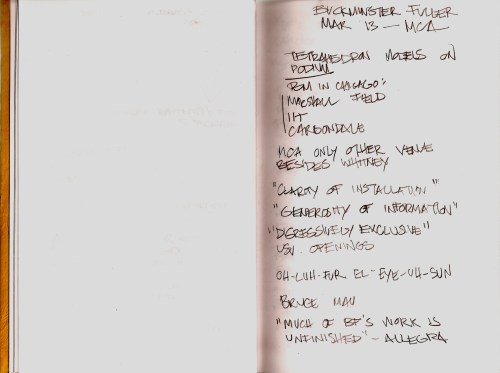 BUCKMINSTER FULLER
MAR 13 — MCA
TETRAHEDRON MODELS ON
PODIUM
IN CHICAGO:
MARSHALL FIELD
IIT
CARBONDALE
MCA ONLY OTHER VENUE
BESIDES WHITNEY
"CLARITY OF INSTALLATION"
"GENEROSITY OF INFORMATION"
"DIGRESSIVELY EXCLUSIVE"
OPENINGS
OH-LUH-FUR EL-EYE-UH-SUN
BRUCE MAU
"MUCH OF BF'S WORK IS
UNFINISHED" - ALLEGRA